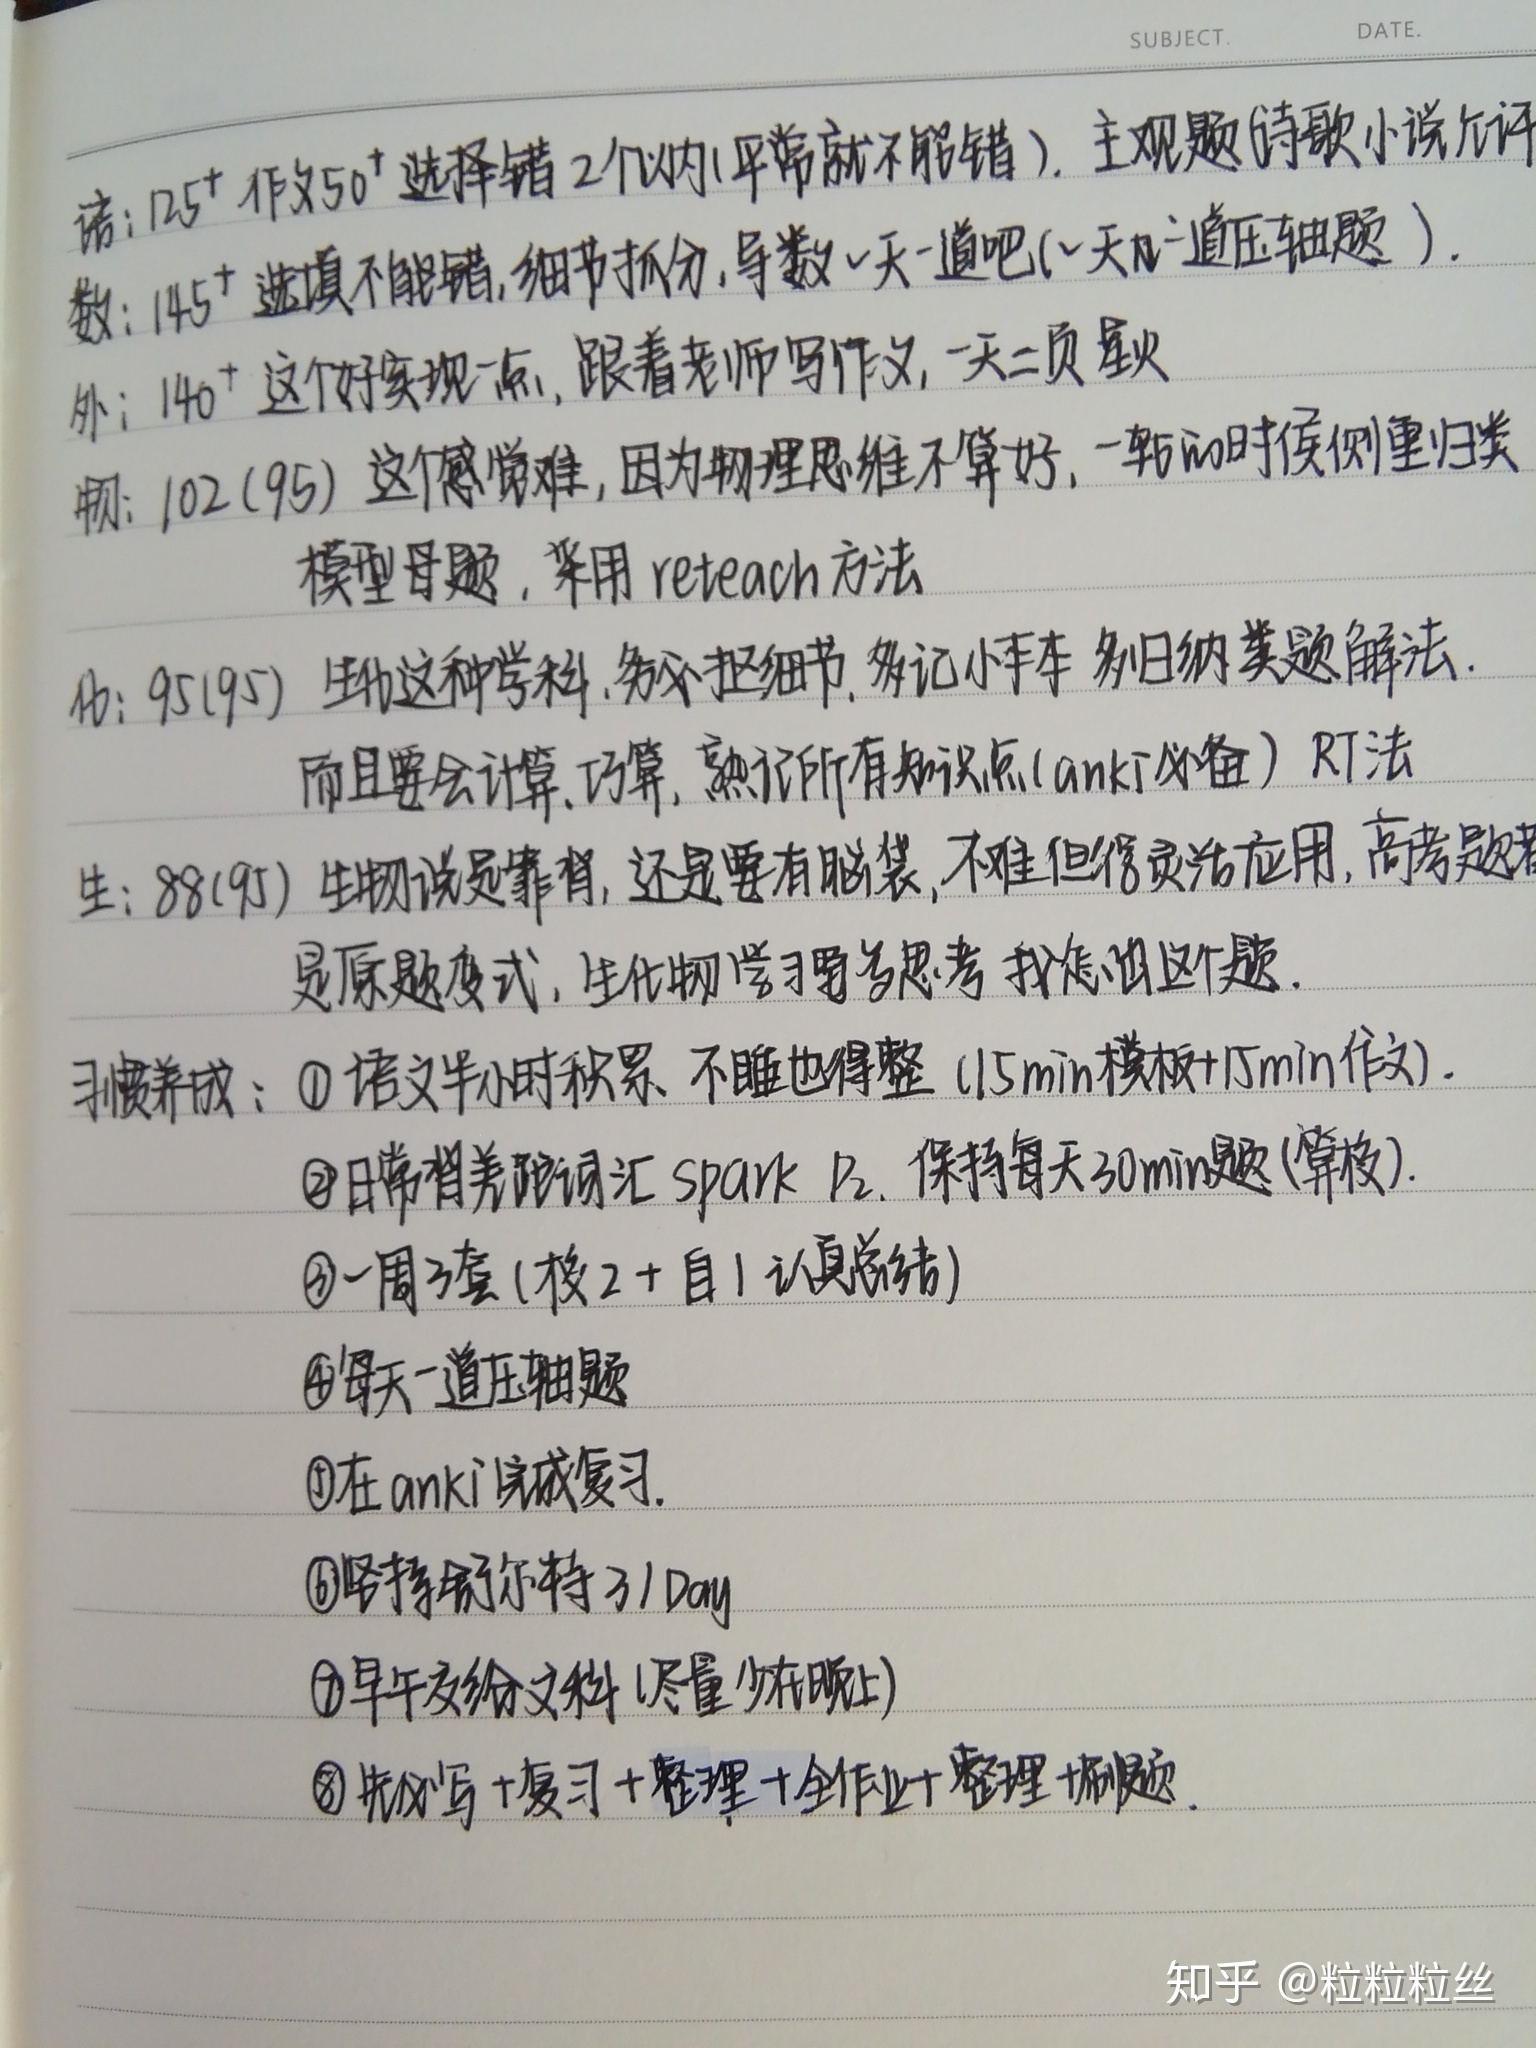 SUBJECT. DATE.
语: 125+ 作文50+ 选择错2个以内(平常就不能错). 主观题(诗歌小说允许
数: 145+ 选填不能错, 细节抓分, 导数一天一道吧(一天几道压轴题).
外: 140+ 这个好实现一点, 跟着老师写作文, 一天二页星火
物: 102(95) 这个感觉难, 因为物理思维不算好, 一轮的时候侧重归类
模型母题, 采用reteach方法
化: 95(95) 生化这种学科, 务必抠细节, 多记小本本 多归纳类题解法.
而且要会计算、巧算, 熟记所有知识点(anki必备) RT法
生: 88(95) 生物说是靠背, 还是要有脑袋, 不难但得灵活应用, 高考题都
是原题变式, 生化物学习要多思考 我怎出这个题.
习惯养成: ① 语文半小时积累、不睡也得整 (15min模板+15min作文).
②日常背美陌词汇 spark P2. 保持每天30min题(算校).
③一周3套(校2+自1 认真总结)
④每天一道压轴题
⑤在anki完成复习.
⑥坚持舒尔特 3/Day
⑦早午交给文科(尽量少在晚上)
⑧先必写+复习+整理+全作业+整理+刷题.
知乎 @粒粒粒丝